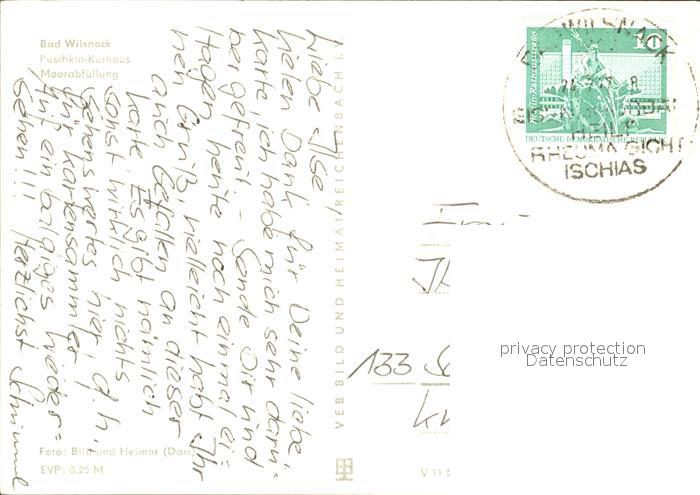 Bad Wilsnack
Puschkin-Kurhaus
Moorabfüllung
Liebe Ilse!
Vielen Dank für Deine liebe
Karte, ich habe mich sehr darü-
ber gefreut - Sende Dir und
Hagen heute noch einmal ei-
nen Gruß, vielleicht habt Ihr
auch Gefallen an dieser
Karte. Es gibt nämlich
sonst wirklich nichts
Sehenswertes hier, d.h.,
für Kartensammler!
Auf ein baldiges Wieder=
sehen!!! Herzlichst
Foto: Bild und Heimat (Darr)
EVP: 0,25 M
VEB BILD UND HEIMAT REICHENBACH i. V.
V 11 5
10
DEUTSCHE DEMOKRATISCHE REPUBLIK
BAD WILSNACK
EISENMOORBAD
HEILT
RHEUMA GICHT
ISCHIAS
133
privacy protection
Datenschutz